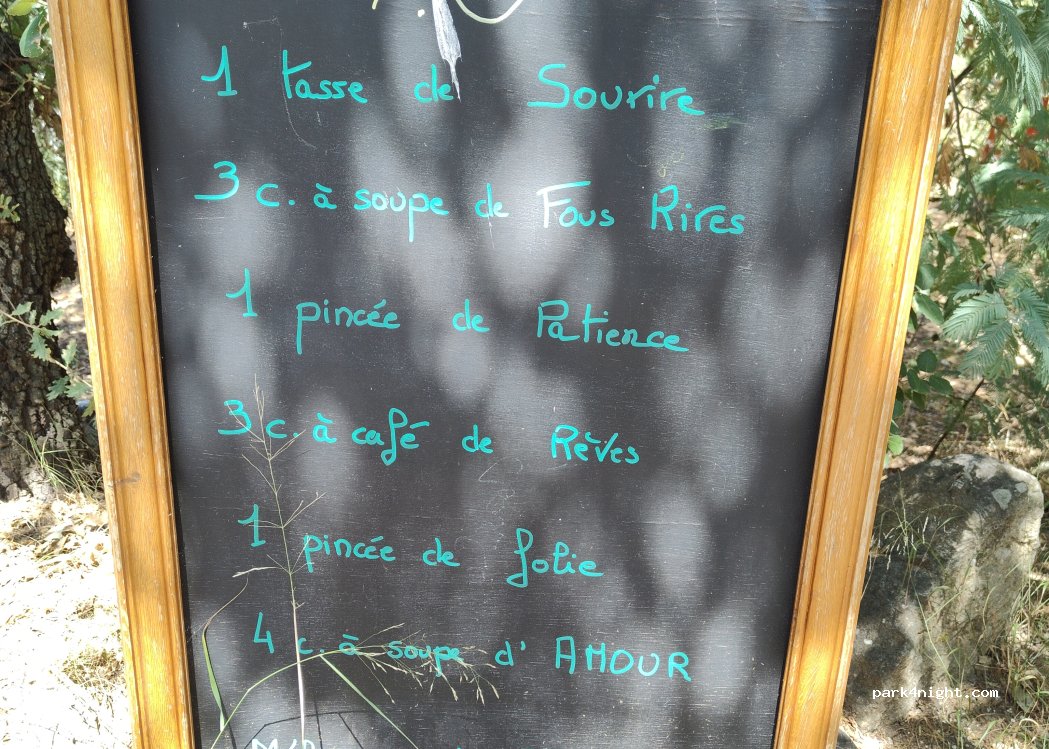 1 tasse de Sourire
3 c. à soupe de Fous Rires
1 pincée de Patience
3 c. à café de Rêves
1 pincée de folie
4 c. à soupe d' AMOUR
park4night.com